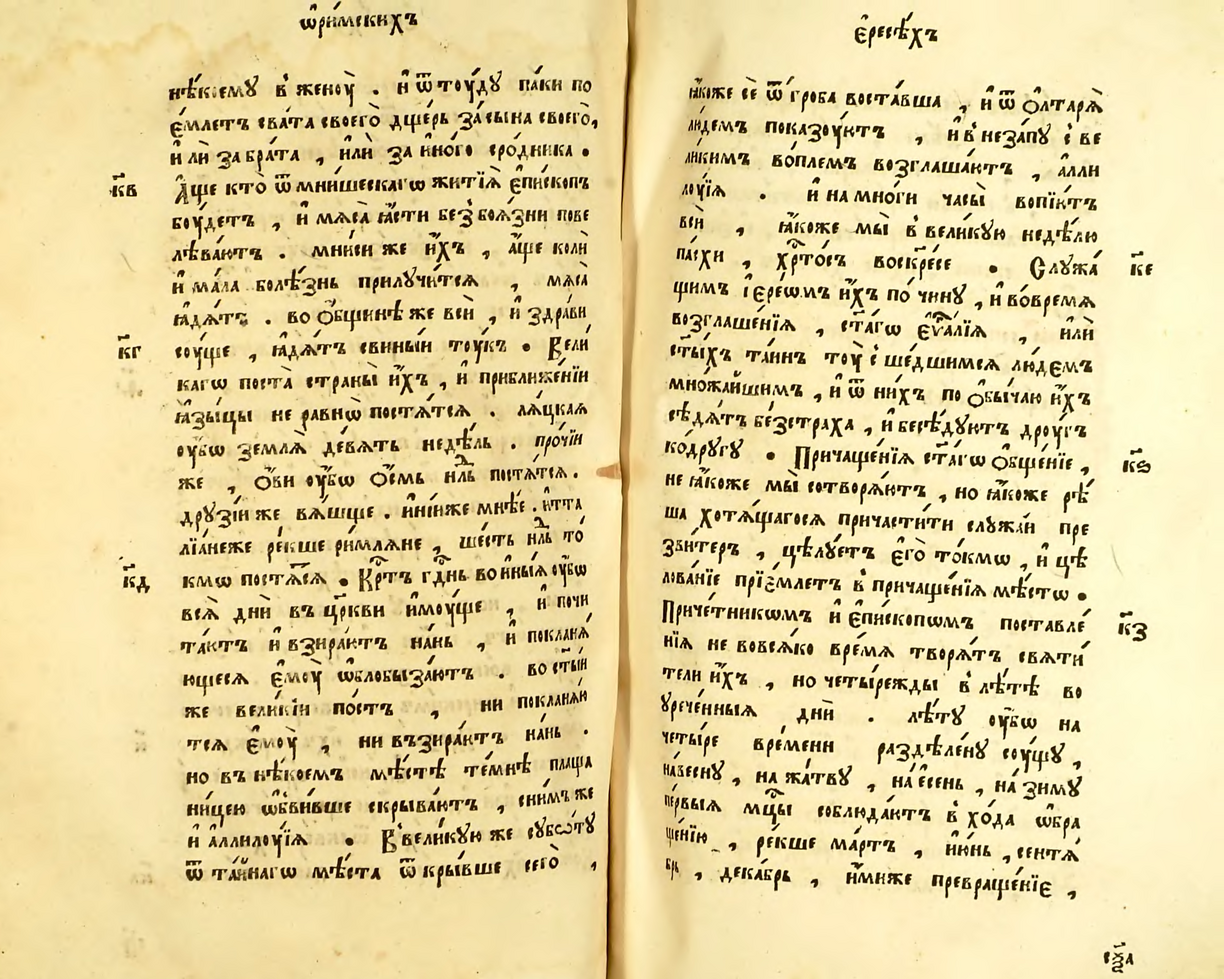 ѡри́мскихъ
нѣ́коемꙋ в̾ женоу̀ . и҆ ѿтоу́дꙋ па́ки по
е҆́млетъ сва́та своего̀ дщерь за сы́на своего̀,
и҆ лѝ за бра́та , и҆лѝ за и҆но́го сро́дника .
кв҃
А҆́ще кто̀ ѿ мнишескагѡ житїѧ̀ е҆пи́скопъ
боу́детъ , и҆ мѧса̀ ꙗ҆́сти без̾ боѧ́зни пове
лѣва́ютъ . мниси же и҆́хъ , а҆́ще колѝ
и҆ ма́ла болѣ́знь прилꙋчи́тсѧ , мѧса̀
ꙗ҆дѧ́тъ . во ѻ҆́бщинѣ же всѝ , и҆ здра́ви
кг҃
соу́ще , ꙗ҆дѧ́тъ свины́и тоу́къ . Вели́
кагѡ поста̀ страны̀ и҆́хъ , и҆ приближе́нїи
ꙗ҆зы́цы не равнѡ̀ постѧ́тсѧ . лѧ́цкаѧ
оу҆́бѡ землѧ̀ де́вѧть недѣ́ль . про́чїи
же , ѻ҆́ви оу҆́бѡ ѻ҆́смь нⷣль постѧ́тсѧ .
дрꙋзі́и же вѧ́щше . и҆ні́и же мнѣ́е . и҆тта
лїа́не же ре́кше ри́млѧне , ше́сть нⷣль то́
кд҃
кмѡ постѧ́сѧ . Крⷭ҇тъ гⷭ҇днь во и҆ны́ѧ оу҆́бѡ
всѧ̀ днѝ въ цр҃кви и҆моу́ще , и҆ почи
та́ютъ и҆ взира́ютъ на́нь , и҆ поклана́
ющесѧ е҆моу̀ ѡ҆блобыза́ютъ . во ст҃ы́и
же вели́кїи по́стъ , ни покланѧ́ю
тсѧ е҆моу̀ , ни възира́ютъ на́нь .
но въ нѣ́коемъ мѣ́стѣ те́мнѣ плаща
ни́цею ѡ҆бви́вше скрыва́ютъ , сни́мъ же
и҆ а҆ллилоу́їѧ . В̾ вели́кꙋю же сꙋббѡ́тꙋ
ѿ та́йнагѡ мѣ́ста ѿкры́вше сего̀ ,
е҆ресѣ́хъ
ꙗ҆́коже сѐ ѿ гро́ба воста́вша , и҆ ѿ ѻ҆лтарѧ̀
лю́демъ показоу́ютъ , и҆ в̾неза́пꙋ с̾ ве
ли́кимъ во́племъ возглаша́ютъ , а҆лли
лоу́їѧ . и҆ на мно́ги часы̀ вопїю́тъ
всѝ , ꙗ҆́коже мы̀ в̾ вели́кꙋю недѣ́лю
ке҃
па́схи , хрⷭ҇то́съ воскре́се . Слꙋжа́
щимъ і҆ере́ѡмъ и҆́хъ по чи́нꙋ , и҆ во́времѧ
возглаше́нїѧ , ст҃а́гѡ е҆ѵⷢ҇а́лїѧ , и҆лѝ
ст҃ы́хъ таи́нъ тоу̀ с̾ше́дшимсѧ лю́демъ
мно́жайшимъ , и҆ ѿ ни́хъ по ѻ҆бы́чаю и҆́хъ
сѣдѧ́тъ безстра́ха , и҆ бесѣ́дꙋютъ дроу́гъ
кѕ҃
ко́дрꙋгꙋ . Причаще́нїѧ ст҃а́гѡ ѻ҆бще́нїе ,
не ꙗ҆́коже мы̀ сотворѧ́ютъ , но ꙗ҆́коже рѣ́
ша хотѧ́щагосѧ причасти́ти слꙋжа́и пре
зви́теръ , цѣлꙋ́етъ е҆го̀ то́кмѡ , и҆ цѣ
лова́нїе прїе́млетъ в̾ причаще́нїѧ мѣ́стѡ .
кз҃
Приче́тникѡмъ и҆ е҆пи́скопѡмъ поставле́
нїѧ не вовсѧ́ко вре́мѧ творѧ́тъ свѧти́
тели и҆́хъ , но четы́режды в̾ лѣ́тѣ во
ᲂуре́че́нныѧ днѝ . лѣ́тꙋ оу҆́бѡ на
четы́ре вре́мени раздѣле́нꙋ соу́щꙋ ,
на весну , на жа́твꙋ , на е҆́сень , на зи́мꙋ
пе́рвыѧ мцⷭ҇ы соблюда́ютъ в̾ хо́да ѡ҆бра
ще́нїю , ре́кше ма́ртъ , и҆ю́нь , сентѧ́
брь , дека́брь , и҆́миже превраще́нїе ,
сѯ҃а